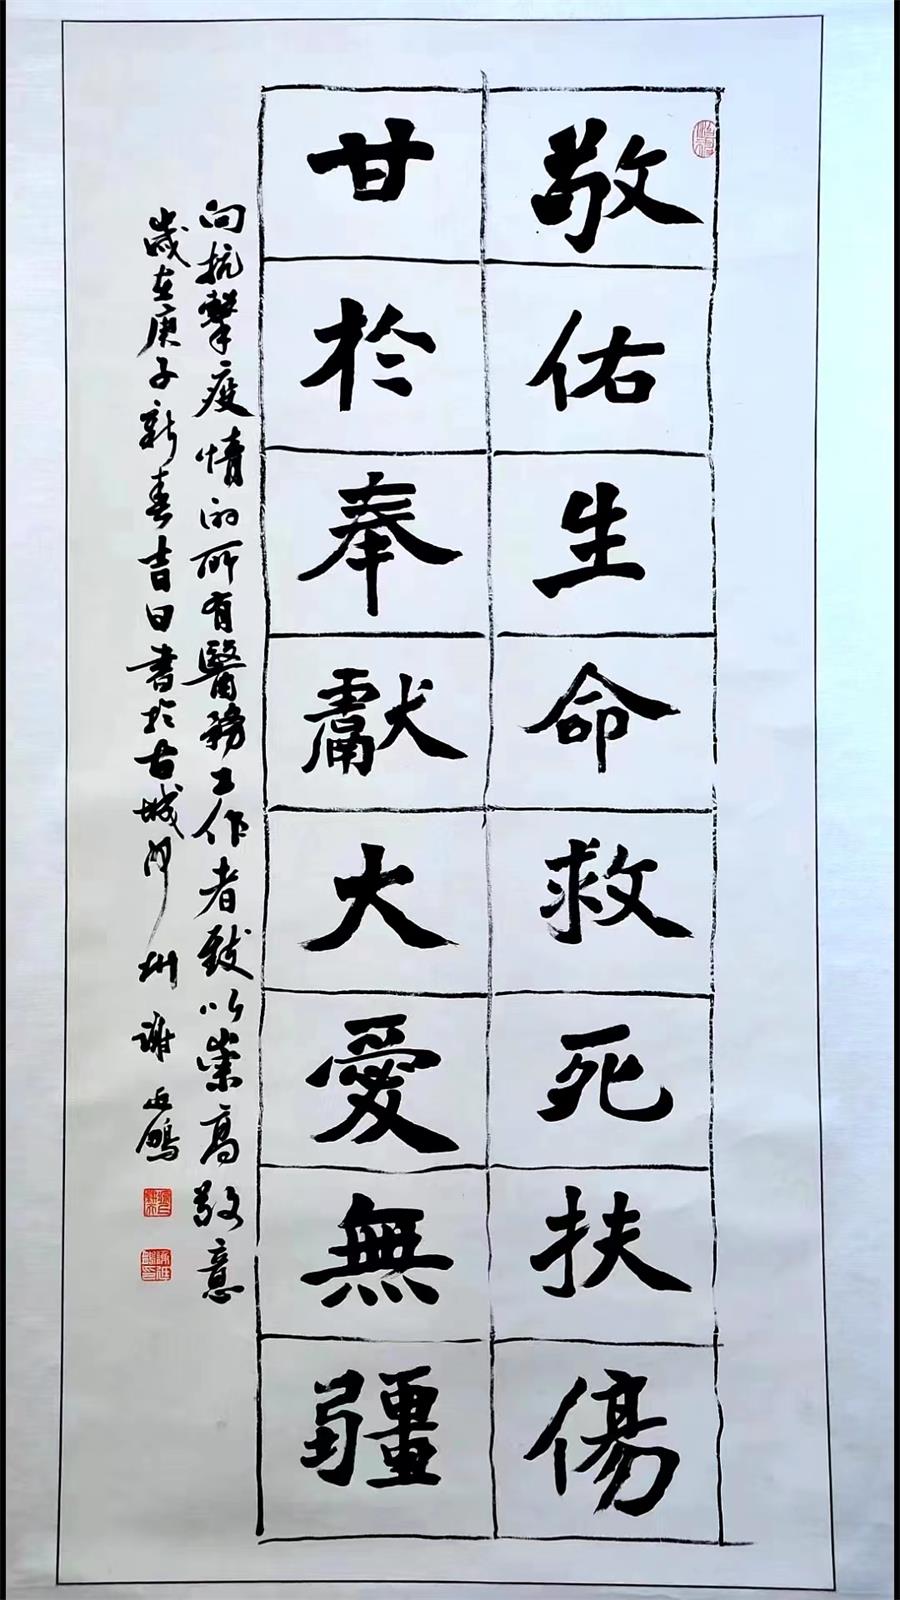 敬佑生命救死扶傷
甘於奉獻大愛無疆
向抗擊疫情的所有醫務工作者致以崇高敬意
歲在庚子新春吉日書於古城 州 謝 鵬